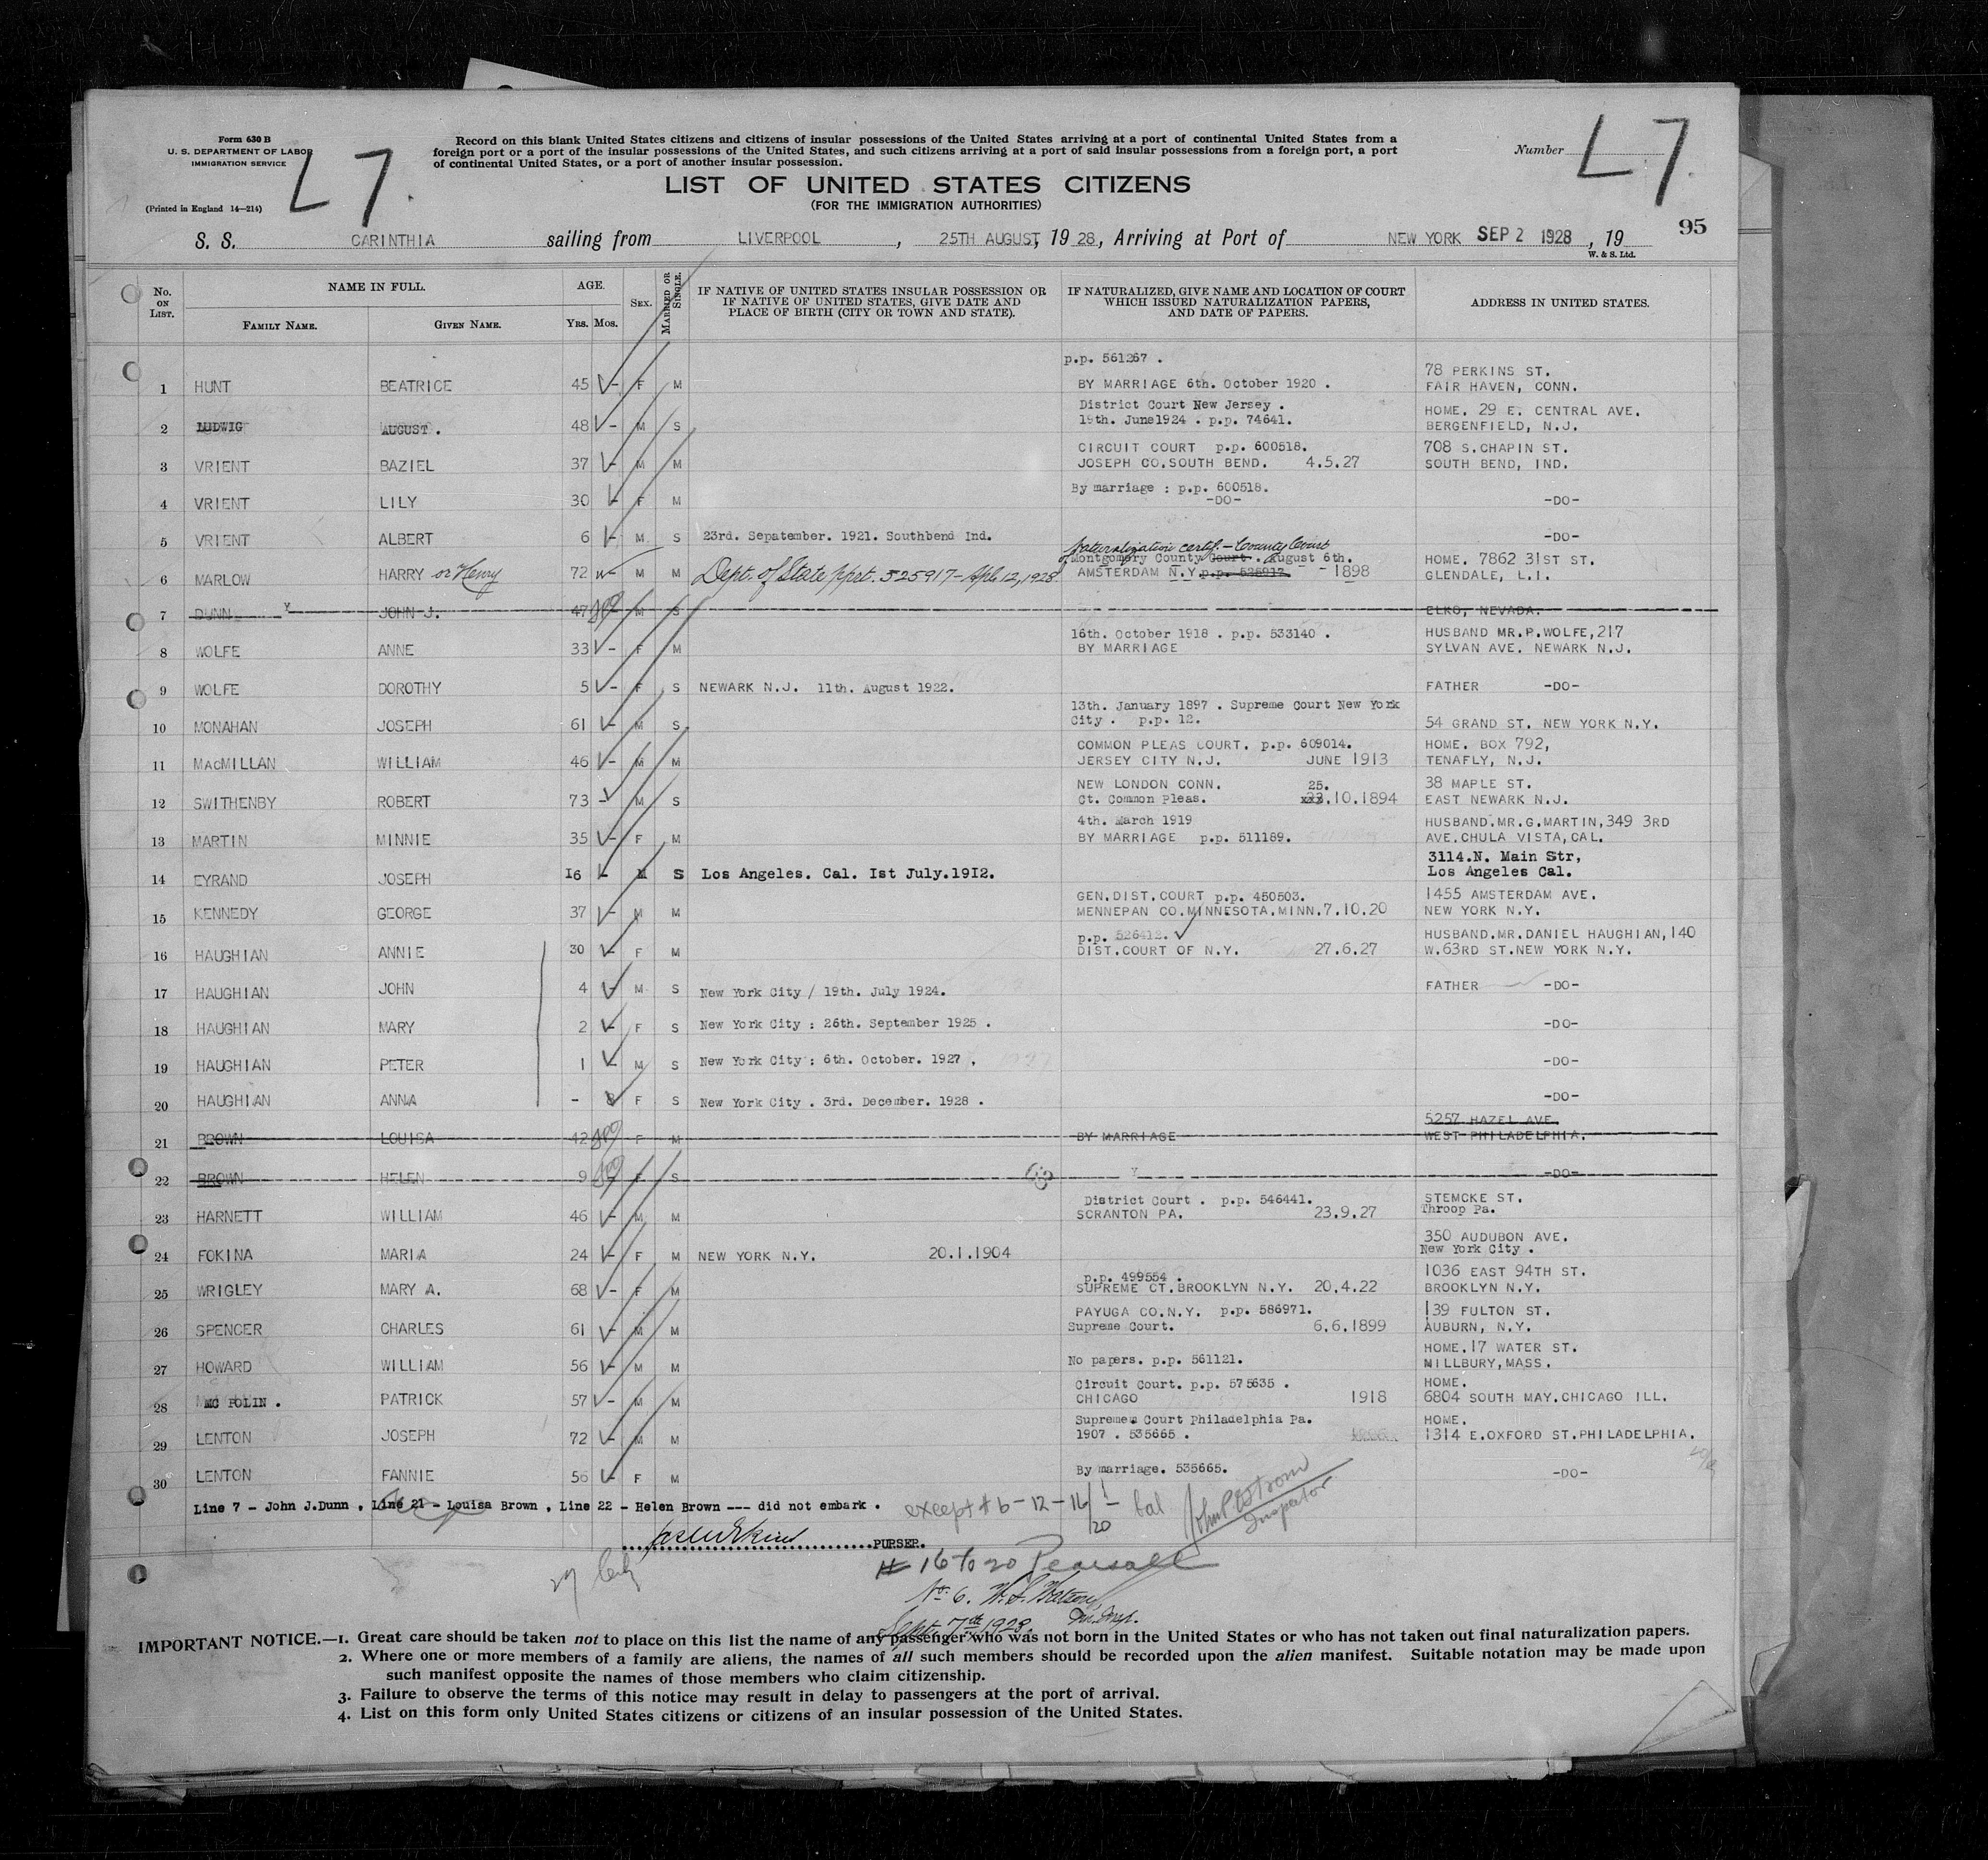 Form 630 B
U. S. DEPARTMENT OF LABOR
IMMIGRATION SERVICE
(Printed in England 14—214)
L 7.
Record on this blank United States citizens and citizens of insular possessions of the United States arriving at a port of continental United States from a
foreign port or a port of the insular possessions of the United States, and such citizens arriving at a port of said insular possessions from a foreign port, a port
of continental United States, or a port of another insular possession.
Number L 7.
LIST OF UNITED STATES CITIZENS
(FOR THE IMMIGRATION AUTHORITIES)
95
S. S. CARINTHIA sailing from LIVERPOOL, 25TH AUGUST, 1928, Arriving at Port of NEW YORK SEP 2 1928, 19
W. & S. Ltd.
No. ON LIST.
NAME IN FULL.
FAMILY NAME. GIVEN NAME.
AGE.
YRS. MOS.
SEX.
MARRIED OR SINGLE.
IF NATIVE OF UNITED STATES INSULAR POSSESSION OR
IF NATIVE OF UNITED STATES, GIVE DATE AND
PLACE OF BIRTH (CITY OR TOWN AND STATE).
IF NATURALIZED, GIVE NAME AND LOCATION OF COURT
WHICH ISSUED NATURALIZATION PAPERS,
AND DATE OF PAPERS.
ADDRESS IN UNITED STATES.
p.p. 561267 .
78 PERKINS ST.
1 HUNT BEATRICE 45 - F M BY MARRIAGE 6th. October 1920 . FAIR HAVEN, CONN.
District Court New Jersey . HOME. 29 E. CENTRAL AVE.
2 LUDWIG AUGUST . 48 - M S 19th. June1924 . p.p. 74641. BERGENFIELD, N.J.
CIRCUIT COURT p.p. 600518. 708 S.CHAPIN ST.
3 VRIENT BAZIEL 37 - M M JOSEPH CO.SOUTH BEND. 4.5.27 SOUTH BEND, IND.
By marriage : p.p. 600518.
4 VRIENT LILY 30 - F M -DO- -DO-
5 VRIENT ALBERT 6 - M S 23rd. Sepatember. 1921. Southbend Ind. -DO-
Naturalization certif. - County Court
Montgomery County Court . August 6th. HOME. 7862 31ST ST.
6 MARLOW HARRY or Henry 72 - M M Dept. of State pprt. 525917 - Apl. 12, 1928 AMSTERDAM N.Y. p.p. 525917 - - 1898 GLENDALE, L.I.
7 DUNN JOHN J. 47 M S ELKO, NEVADA.
16th. October 1918 . p.p. 533140 . HUSBAND MR.P.WOLFE,217
8 WOLFE ANNE 33 - F M BY MARRIAGE SYLVAN AVE. NEWARK N.J.
9 WOLFE DOROTHY 5 - F S NEWARK N.J. 11th. August 1922. FATHER -DO-
13th. January 1897 . Supreme Court New York
10 MONAHAN JOSEPH 61 - M S City . p.p. 12. 54 GRAND ST. NEW YORK N.Y.
COMMON PLEAS COURT. p.p. 609014. HOME. BOX 792,
11 MACMILLAN WILLIAM 46 - M M JERSEY CITY N.J. JUNE 1913 TENAFLY, N.J.
NEW LONDON CONN. 25. 38 MAPLE ST.
12 SWITHENBY ROBERT 73 - M S Ct. Common Pleas. .10.1894 EAST NEWARK N.J.
4th. March 1919 HUSBAND.MR.G.MARTIN,349 3RD
13 MARTIN MINNIE 35 - F M BY MARRIAGE p.p. 511189. AVE.CHULA VISTA,CAL.
3114.N. Main Str,
14 EYRAND JOSEPH I6 - M S Los Angeles. Cal. Ist July.19I2. Los Angeles Cal.
GEN.DIST.COURT p.p. 450503. 1455 AMSTERDAM AVE.
15 KENNEDY GEORGE 37 - M M MENNEPAN CO.MINNESOTA.MINN.7.10.20 NEW YORK N.Y.
p.p. 526412. HUSBAND.MR.DANIEL HAUGHIAN,140
16 HAUGHIAN ANNIE 30 - F M DIST.COURT OF N.Y. 27.6.27 W.63RD ST.NEW YORK N.Y.
17 HAUGHIAN JOHN 4 - M S New York City / 19th. July 1924. FATHER -DO-
18 HAUGHIAN MARY 2 - F S New York City : 26th. September 1925 . -DO-
19 HAUGHIAN PETER 1 - M S New York City : 6th. October. 1927 . -DO-
20 HAUGHIAN ANNA - 8 F S New York City . 3rd. December. 1928 . -DO-
5257 HAZEL AVE.
21 BROWN LOUISA 42 F M BY MARRIAGE WEST PHILADELPHIA.
22 BROWN HELEN 9 F S -DO-
District Court . p.p. 546441. STEMCKE ST.
23 HARNETT WILLIAM 46 - M M SCRANTON PA. 23.9.27 Throop Pa.
350 AUDUBON AVE.
24 FOKINA MARIA 24 - F M NEW YORK N.Y. 20.1.1904 New York City .
p.p. 499554 . 1036 EAST 94TH ST.
25 WRIGLEY MARY A. 68 - F M SUPREME CT.BROOKLYN N.Y. 20.4.22 BROOKLYN N.Y.
PAYUGA CO.N.Y. p.p. 586971. 139 FULTON ST.
26 SPENCER CHARLES 61 - M M Supreme Court. 6.6.1899 AUBURN, N.Y.
HOME.17 WATER ST.
27 HOWARD WILLIAM 56 - M M No papers. p.p. 561121. MILLBURY,MASS.
Circuit Court. p.p. 575635 . HOME.
28 MC POLIN . PATRICK 57 - M M CHICAGO 1918 6804 SOUTH MAY.CHICAGO ILL.
Supreme Court Philadelphia Pa. HOME.
29 LENTON JOSEPH 72 - M M 1907 . 535665 . 1314 E.OXFORD ST.PHILADELPHIA.
30 LENTON FANNIE 56 - F M By marriage. 535665. -DO-
Line 7 - John J.Dunn , Line 21 - Louisa Brown , Line 22 - Helen Brown --- did not embark .
except # 6 - 12 - 16/20 - bal
Inspector
PURSER.
# 16 to 20 Pearsall
No. 6. W. S. Watson
Sept. 7th 1928.
IMPORTANT NOTICE.—1. Great care should be taken not to place on this list the name of any passenger who was not born in the United States or who has not taken out final naturalization papers.
2. Where one or more members of a family are aliens, the names of all such members should be recorded upon the alien manifest. Suitable notation may be made upon
such manifest opposite the names of those members who claim citizenship.
3. Failure to observe the terms of this notice may result in delay to passengers at the port of arrival.
4. List on this form only United States citizens or citizens of an insular possession of the United States.